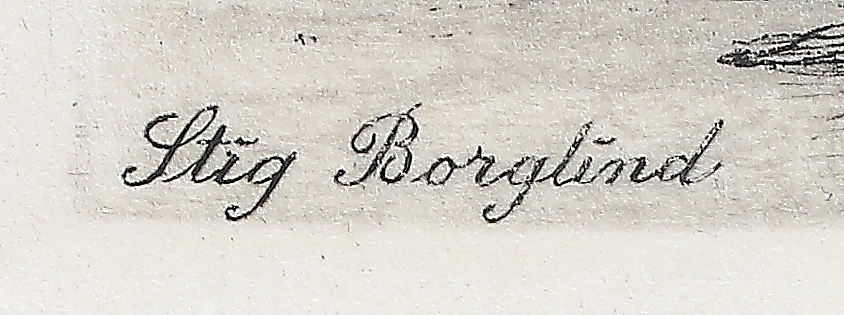 Stig Borglind